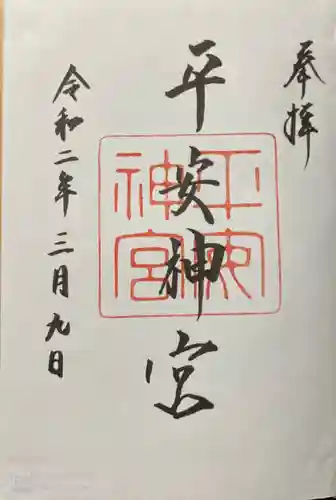 奉拝
平安神宮
平安神宮
令和二年三月九日